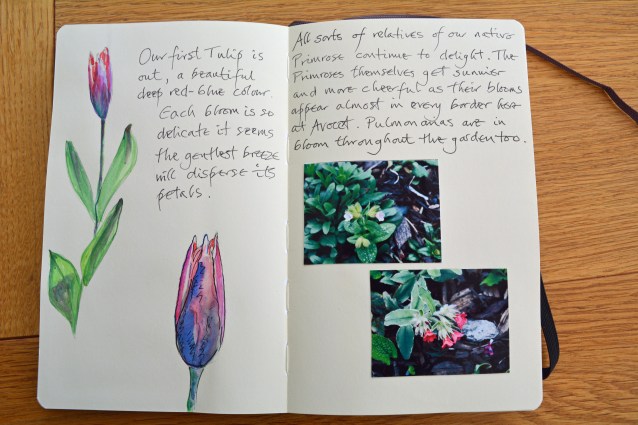 Our first Tulip is
out, a beautiful
deep red-blue colour.
Each bloom is so
delicate it seems
the gentlest breeze
will disperse its
petals.
All sorts of relatives of our native
Primrose continue to delight. The
Primroses themselves get sunnier
and more cheerful as their blooms
appear almost in every border here
at Avocet. Pulmonarias are in
bloom throughout the garden too.